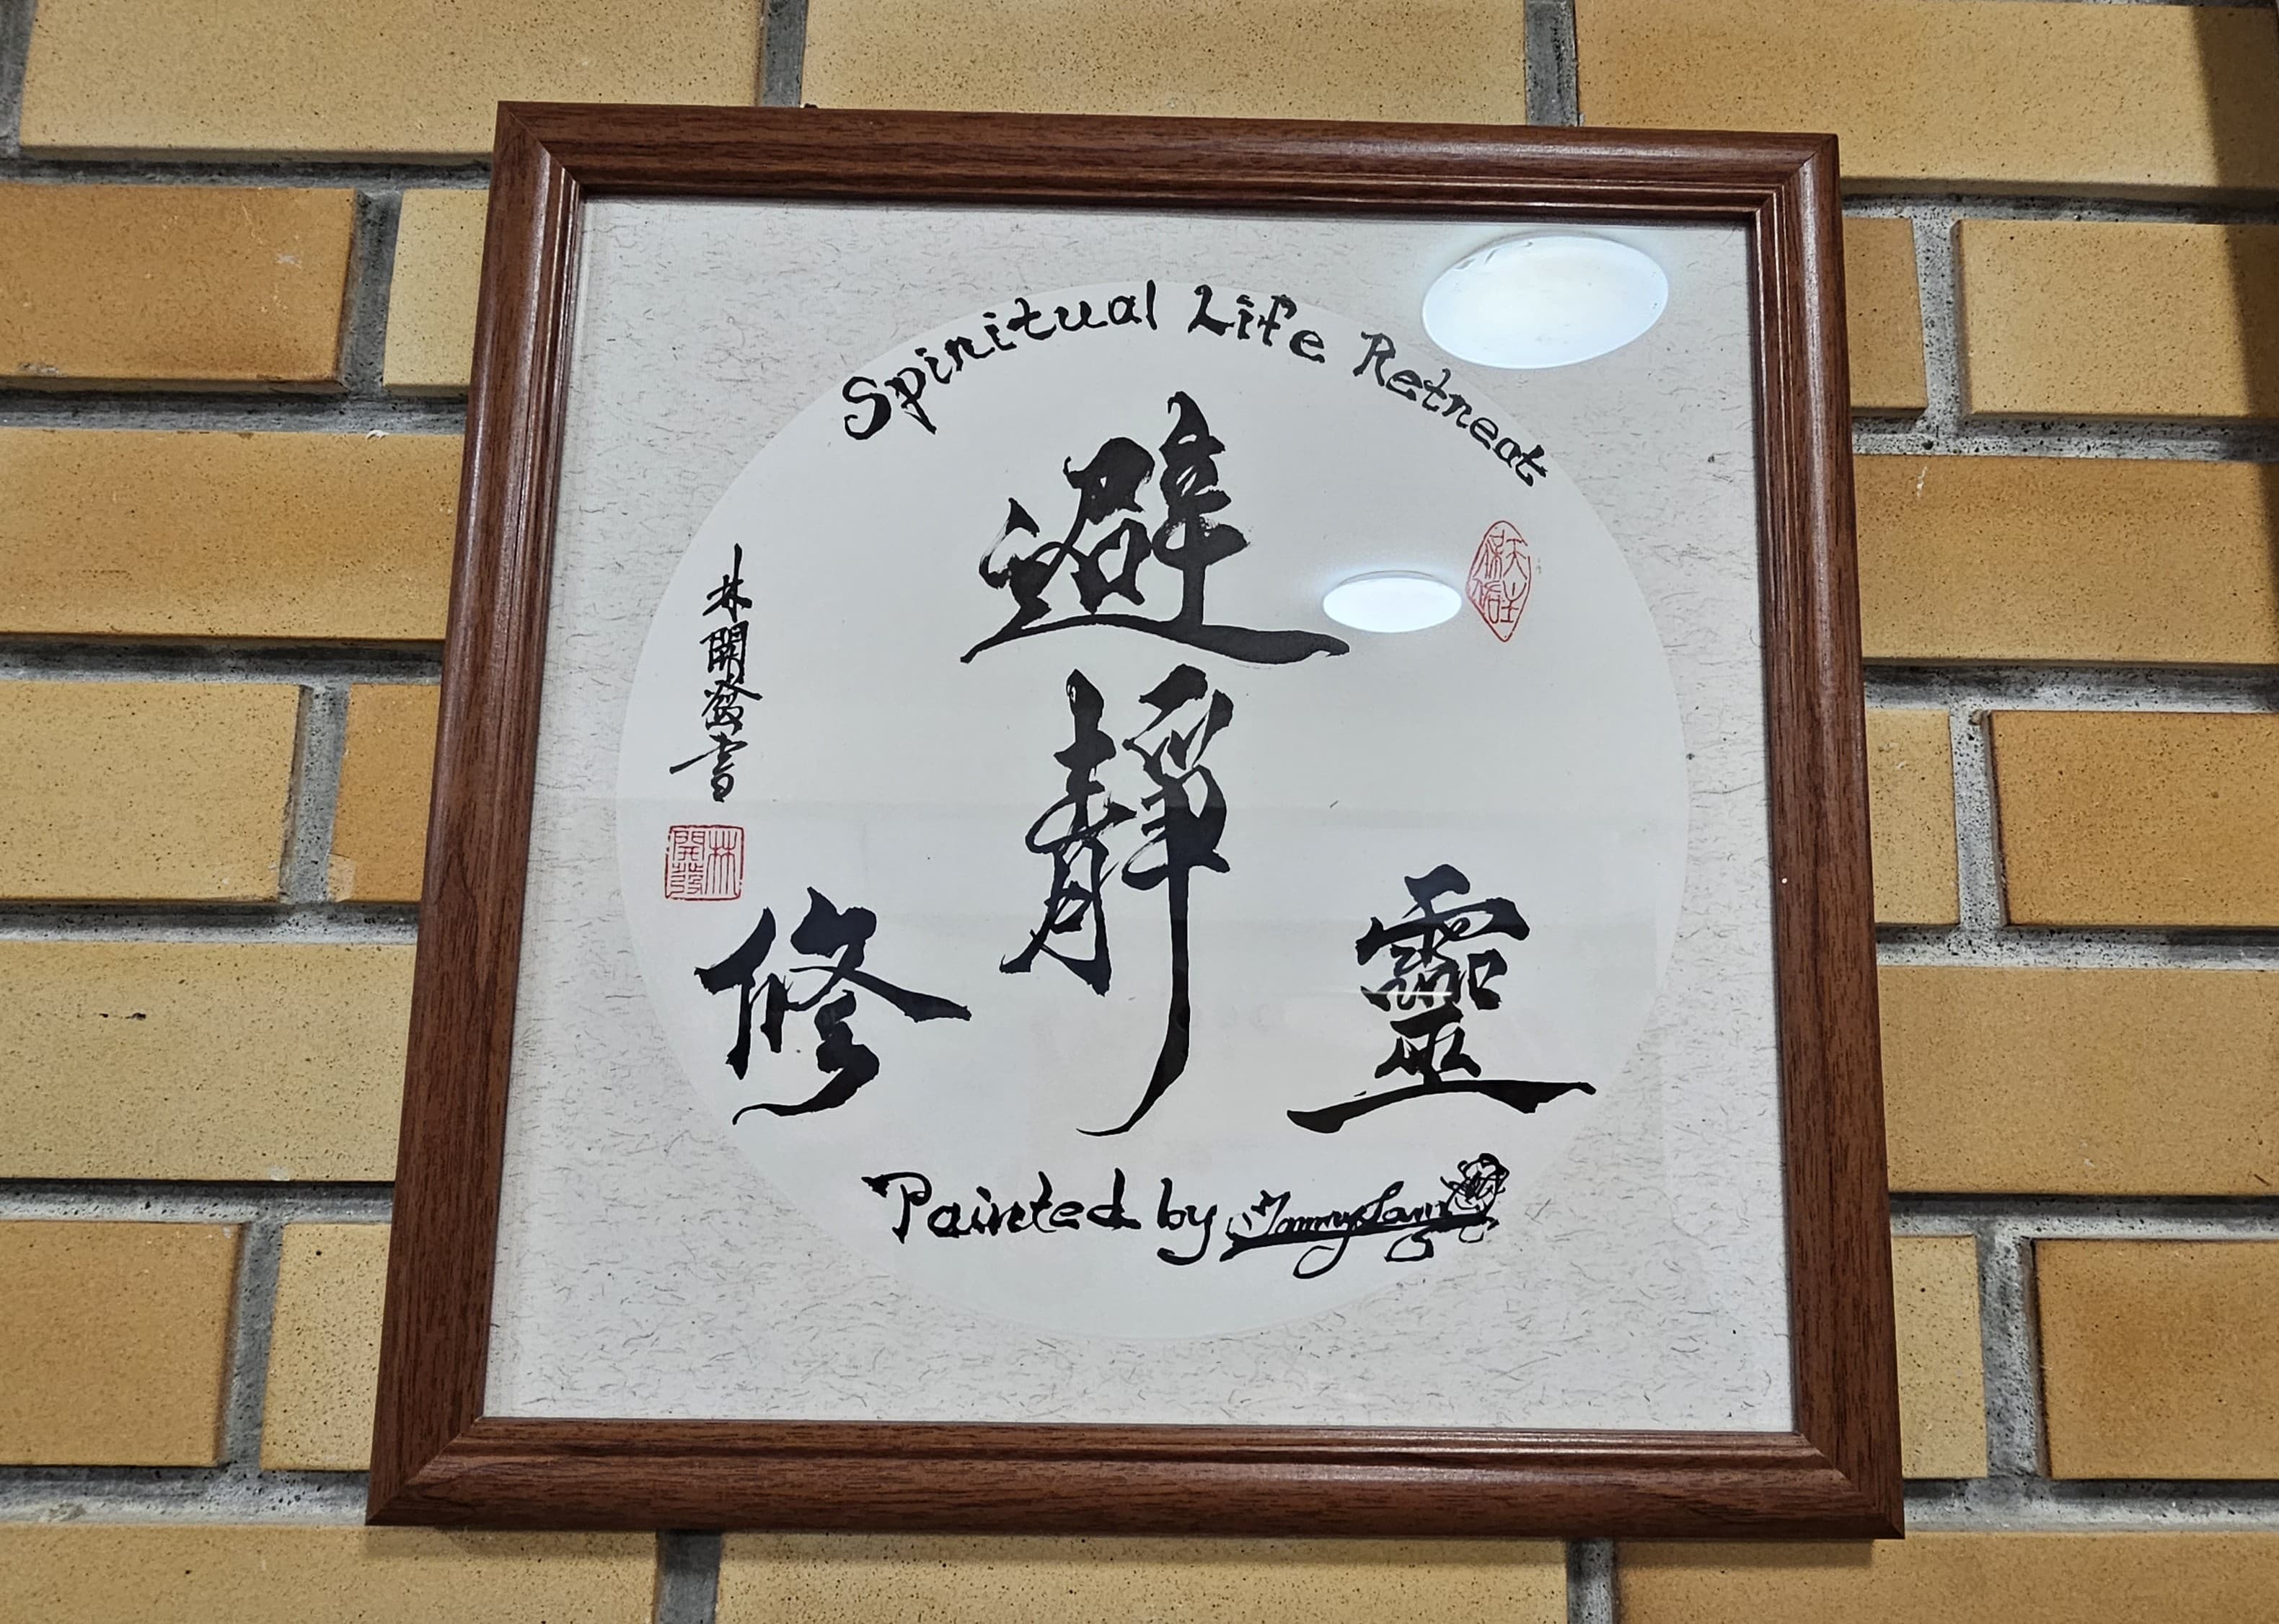 Spiritual Life Retreat
避
靜
靈修
天主保佑
林開發書
林開發
Painted by Tommy Lam